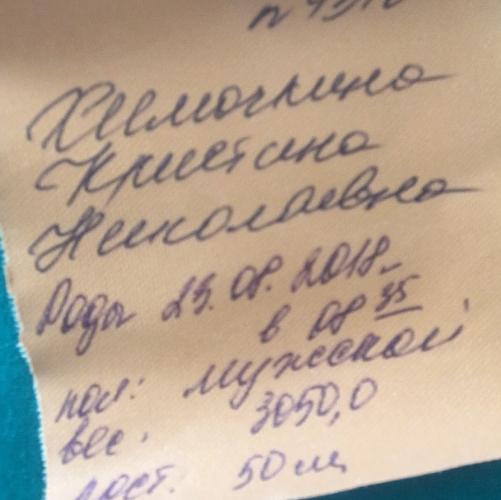 Кристина
Николаевна
Роды 23.08.2018
в 08 35
пол: мужской
вес. 3050,0
рост. 50 см